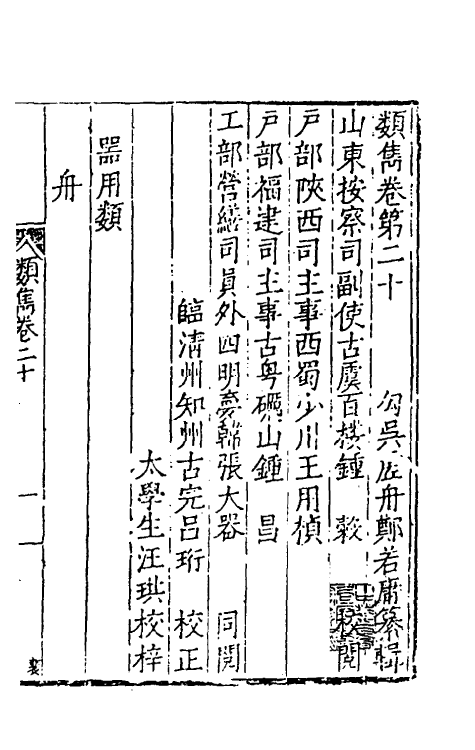 類雋卷第二十 勾吳虛舟鄭若庸纂輯
山東按察司副使古虞百樓鍾 穀 校閱
戶部陝西司主事西蜀少川王用楨
戶部福建司主事古粵礪山鍾 昌
工部營繕司員外四明夢翰張大器 同閱
臨清州知州古完呂珩 校正
太學生汪珙校梓
器用類
舟
類雋卷二十
一